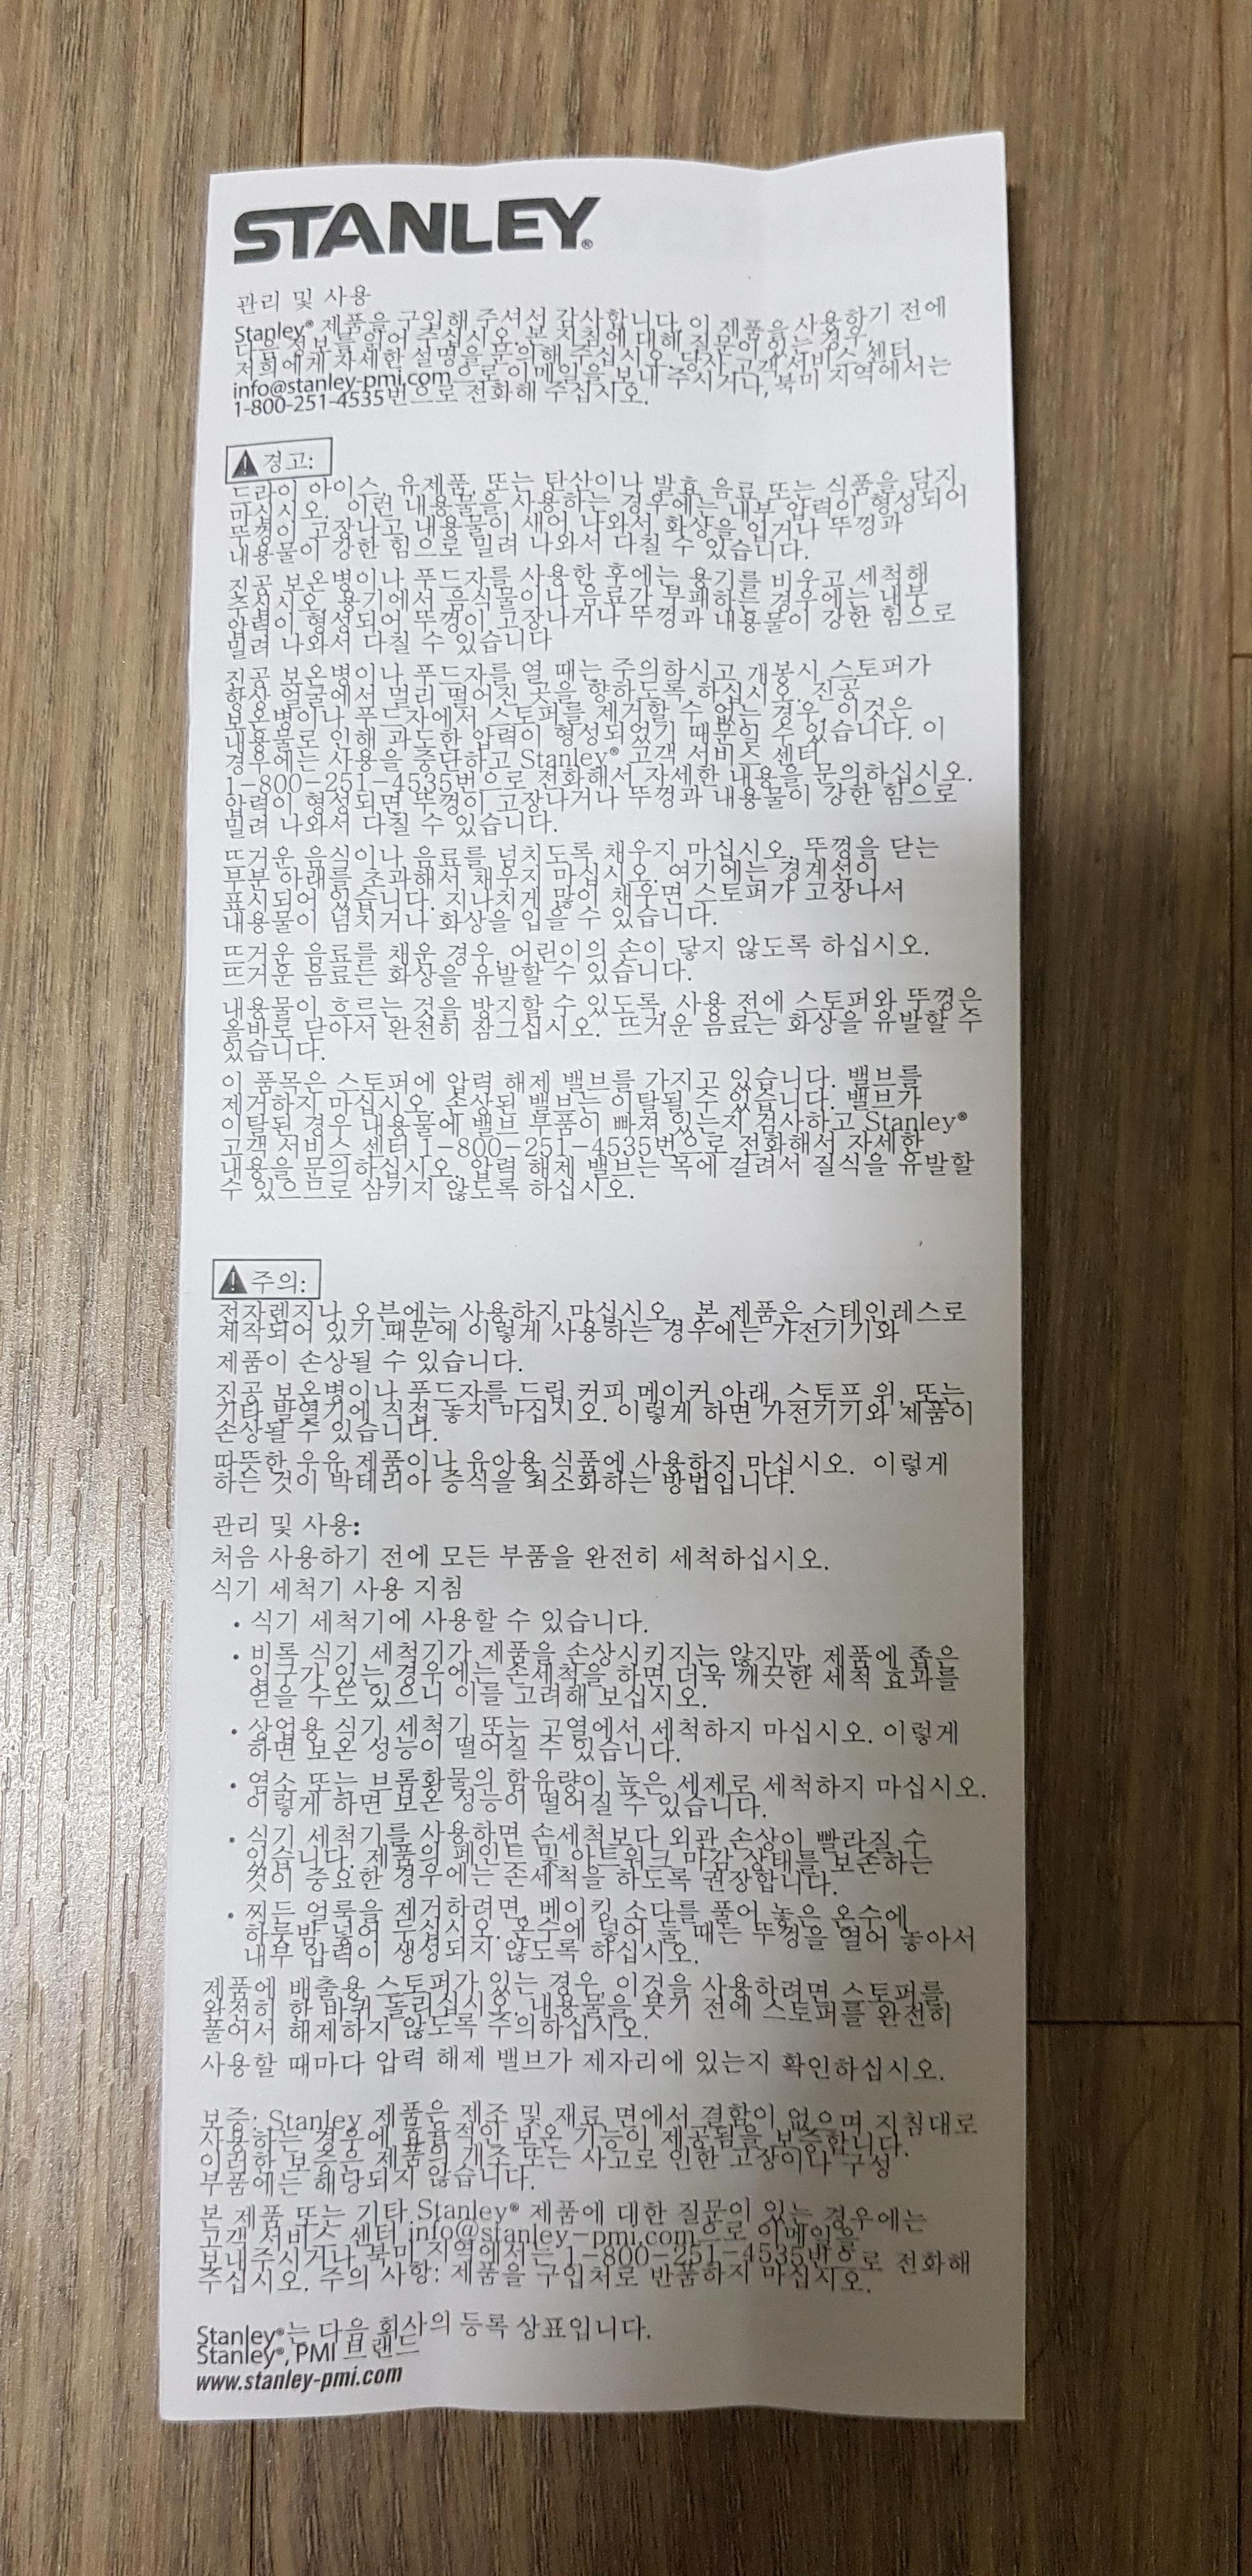 STANLEY®
관리 및 사용
Stanley® 제품을 구입해 주셔서 감사합니다. 이 제품을 사용하기 전에
다음 정보를 읽어 주십시오. 본 지침에 대해 질문이 있는 경우,
저희에게 자세한 설명을 문의해 주십시오. 당사 고객 서비스 센터
info@stanley-pmi.com으로 이메일을 보내 주시거나, 북미 지역에서는
1-800-251-4535번으로 전화해 주십시오.
경고:
드라이 아이스, 유제품, 또는 탄산이나 발효 음료 또는 식품을 담지
마십시오. 이런 내용물을 사용하는 경우에는 내부 압력이 형성되어
뚜껑이 고장나고 내용물이 새어 나와서 화상을 입거나 뚜껑과
내용물이 강한 힘으로 밀려 나와서 다칠 수 있습니다.
진공 보온병이나 푸드자를 사용한 후에는 용기를 비우고 세척해
주십시오. 용기에서 음식물이나 음료가 부패하는 경우에는 내부
압력이 형성되어, 뚜껑이 고장나거나 뚜껑과 내용물이 강한 힘으로
밀려 나와서 다칠 수 있습니다
진공 보온병이나 푸드자를 열 때는 주의하시고 개봉시 스토퍼가
항상 얼굴에서 멀리 떨어진 곳을 향하도록 하십시오. 진공
보온병이나 푸드자에서 스토퍼를 제거할 수 없는 경우, 이것은
내용물로 인해 과도한 압력이 형성되었기 때문일 수 있습니다. 이
경우에는 사용을 중단하고 Stanley® 고객 서비스 센터
1-800-251-4535번으로 전화해서 자세한 내용을 문의하십시오.
압력이 형성되면 뚜껑이 고장나거나 뚜껑과 내용물이 강한 힘으로
밀려 나와서 다칠 수 있습니다.
뜨거운 음식이나 음료를 넘치도록 채우지 마십시오. 뚜껑을 닫는
부분 아래를 초과해서 채우지 마십시오. 여기에는 경계선이
표시되어 있습니다. 지나치게 많이 채우면 스토퍼가 고장나서
내용물이 넘치거나 화상을 입을 수 있습니다.
뜨거운 음료를 채운 경우, 어린이의 손이 닿지 않도록 하십시오.
뜨거운 음료는 화상을 유발할 수 있습니다.
내용물이 흐르는 것을 방지할 수 있도록, 사용 전에 스토퍼와 뚜껑은
올바로 닫아서 완전히 잠그십시오. 뜨거운 음료는 화상을 유발할 수
있습니다.
이 품목은 스토퍼에 압력 해제 밸브를 가지고 있습니다. 밸브를
제거하지 마십시오. 손상된 밸브는 이탈될 수 있습니다. 밸브가
이탈된 경우 내용물에 밸브 부품이 빠져 있는지 검사하고 Stanley®
고객 서비스 센터 1-800-251-4535번으로 전화해서 자세한
내용을 문의하십시오. 압력 해제 밸브는 목에 걸려서 질식을 유발할
수 있으므로 삼키지 않도록 하십시오.
주의:
전자렌지나 오븐에는 사용하지 마십시오. 본 제품은 스테인레스로
제작되어 있기 때문에 이렇게 사용하는 경우에는 가전기기와
제품이 손상될 수 있습니다.
진공 보온병이나 푸드자를 드립 커피 메이커 아래, 스토프 위, 또는
기타 발열기에 직접 놓지 마십시오. 이렇게 하면 가전기기와 제품이
손상될 수 있습니다.
따뜻한 우유 제품이나 유아용 식품에 사용하지 마십시오. 이렇게
하는 것이 박테리아 증식을 최소화하는 방법입니다.
관리 및 사용:
처음 사용하기 전에 모든 부품을 완전히 세척하십시오.
식기 세척기 사용 지침
• 식기 세척기에 사용할 수 있습니다.
• 비록 식기 세척기가 제품을 손상시키지는 않지만, 제품에 좁은
입구가 있는 경우에는 손세척을 하면 더욱 깨끗한 세척 효과를
얻을 수도 있으니 이를 고려해 보십시오.
• 상업용 식기 세척기 또는 고열에서 세척하지 마십시오. 이렇게
하면 보온 성능이 떨어질 수 있습니다.
• 염소 또는 브롬화물의 함유량이 높은 세제로 세척하지 마십시오.
이렇게 하면 보온 성능이 떨어질 수 있습니다.
• 식기 세척기를 사용하면 손세척보다 외관 손상이 빨라질 수
있습니다. 제품의 페인트 및 아트워크 마감 상태를 보존하는
것이 중요한 경우에는 손세척을 하도록 권장합니다.
• 찌든 얼룩을 제거하려면, 베이킹 소다를 풀어 놓은 온수에
하룻밤 넣어 두십시오. 온수에 넣어 둘 때는 뚜껑을 열어 놓아서
내부 압력이 생성되지 않도록 하십시오.
제품에 배출용 스토퍼가 있는 경우, 이것을 사용하려면 스토퍼를
완전히 한 바퀴 돌리십시오. 내용물을 붓기 전에 스토퍼를 완전히
풀어서 해제하지 않도록 주의하십시오.
사용할 때마다 압력 해제 밸브가 제자리에 있는지 확인하십시오.
보증: Stanley 제품은 제조 및 재료 면에서 결함이 없으며 지침대로
사용하는 경우에 효율적인 보온 기능이 제공됨을 보증합니다.
이러한 보증은 제품의 개조 또는 사고로 인한 고장이나 구성
부품에는 해당되지 않습니다.
본 제품 또는 기타 Stanley® 제품에 대한 질문이 있는 경우에는
고객 서비스 센터 info@stanley-pmi.com으로 이메일을
보내주시거나, 북미 지역에서는 1-800-251-4535번으로 전화해
주십시오. 주의 사항: 제품을 구입처로 반품하지 마십시오.
Stanley®는 다음 회사의 등록 상표입니다.
Stanley®, PMI 브랜드
www.stanley-pmi.com